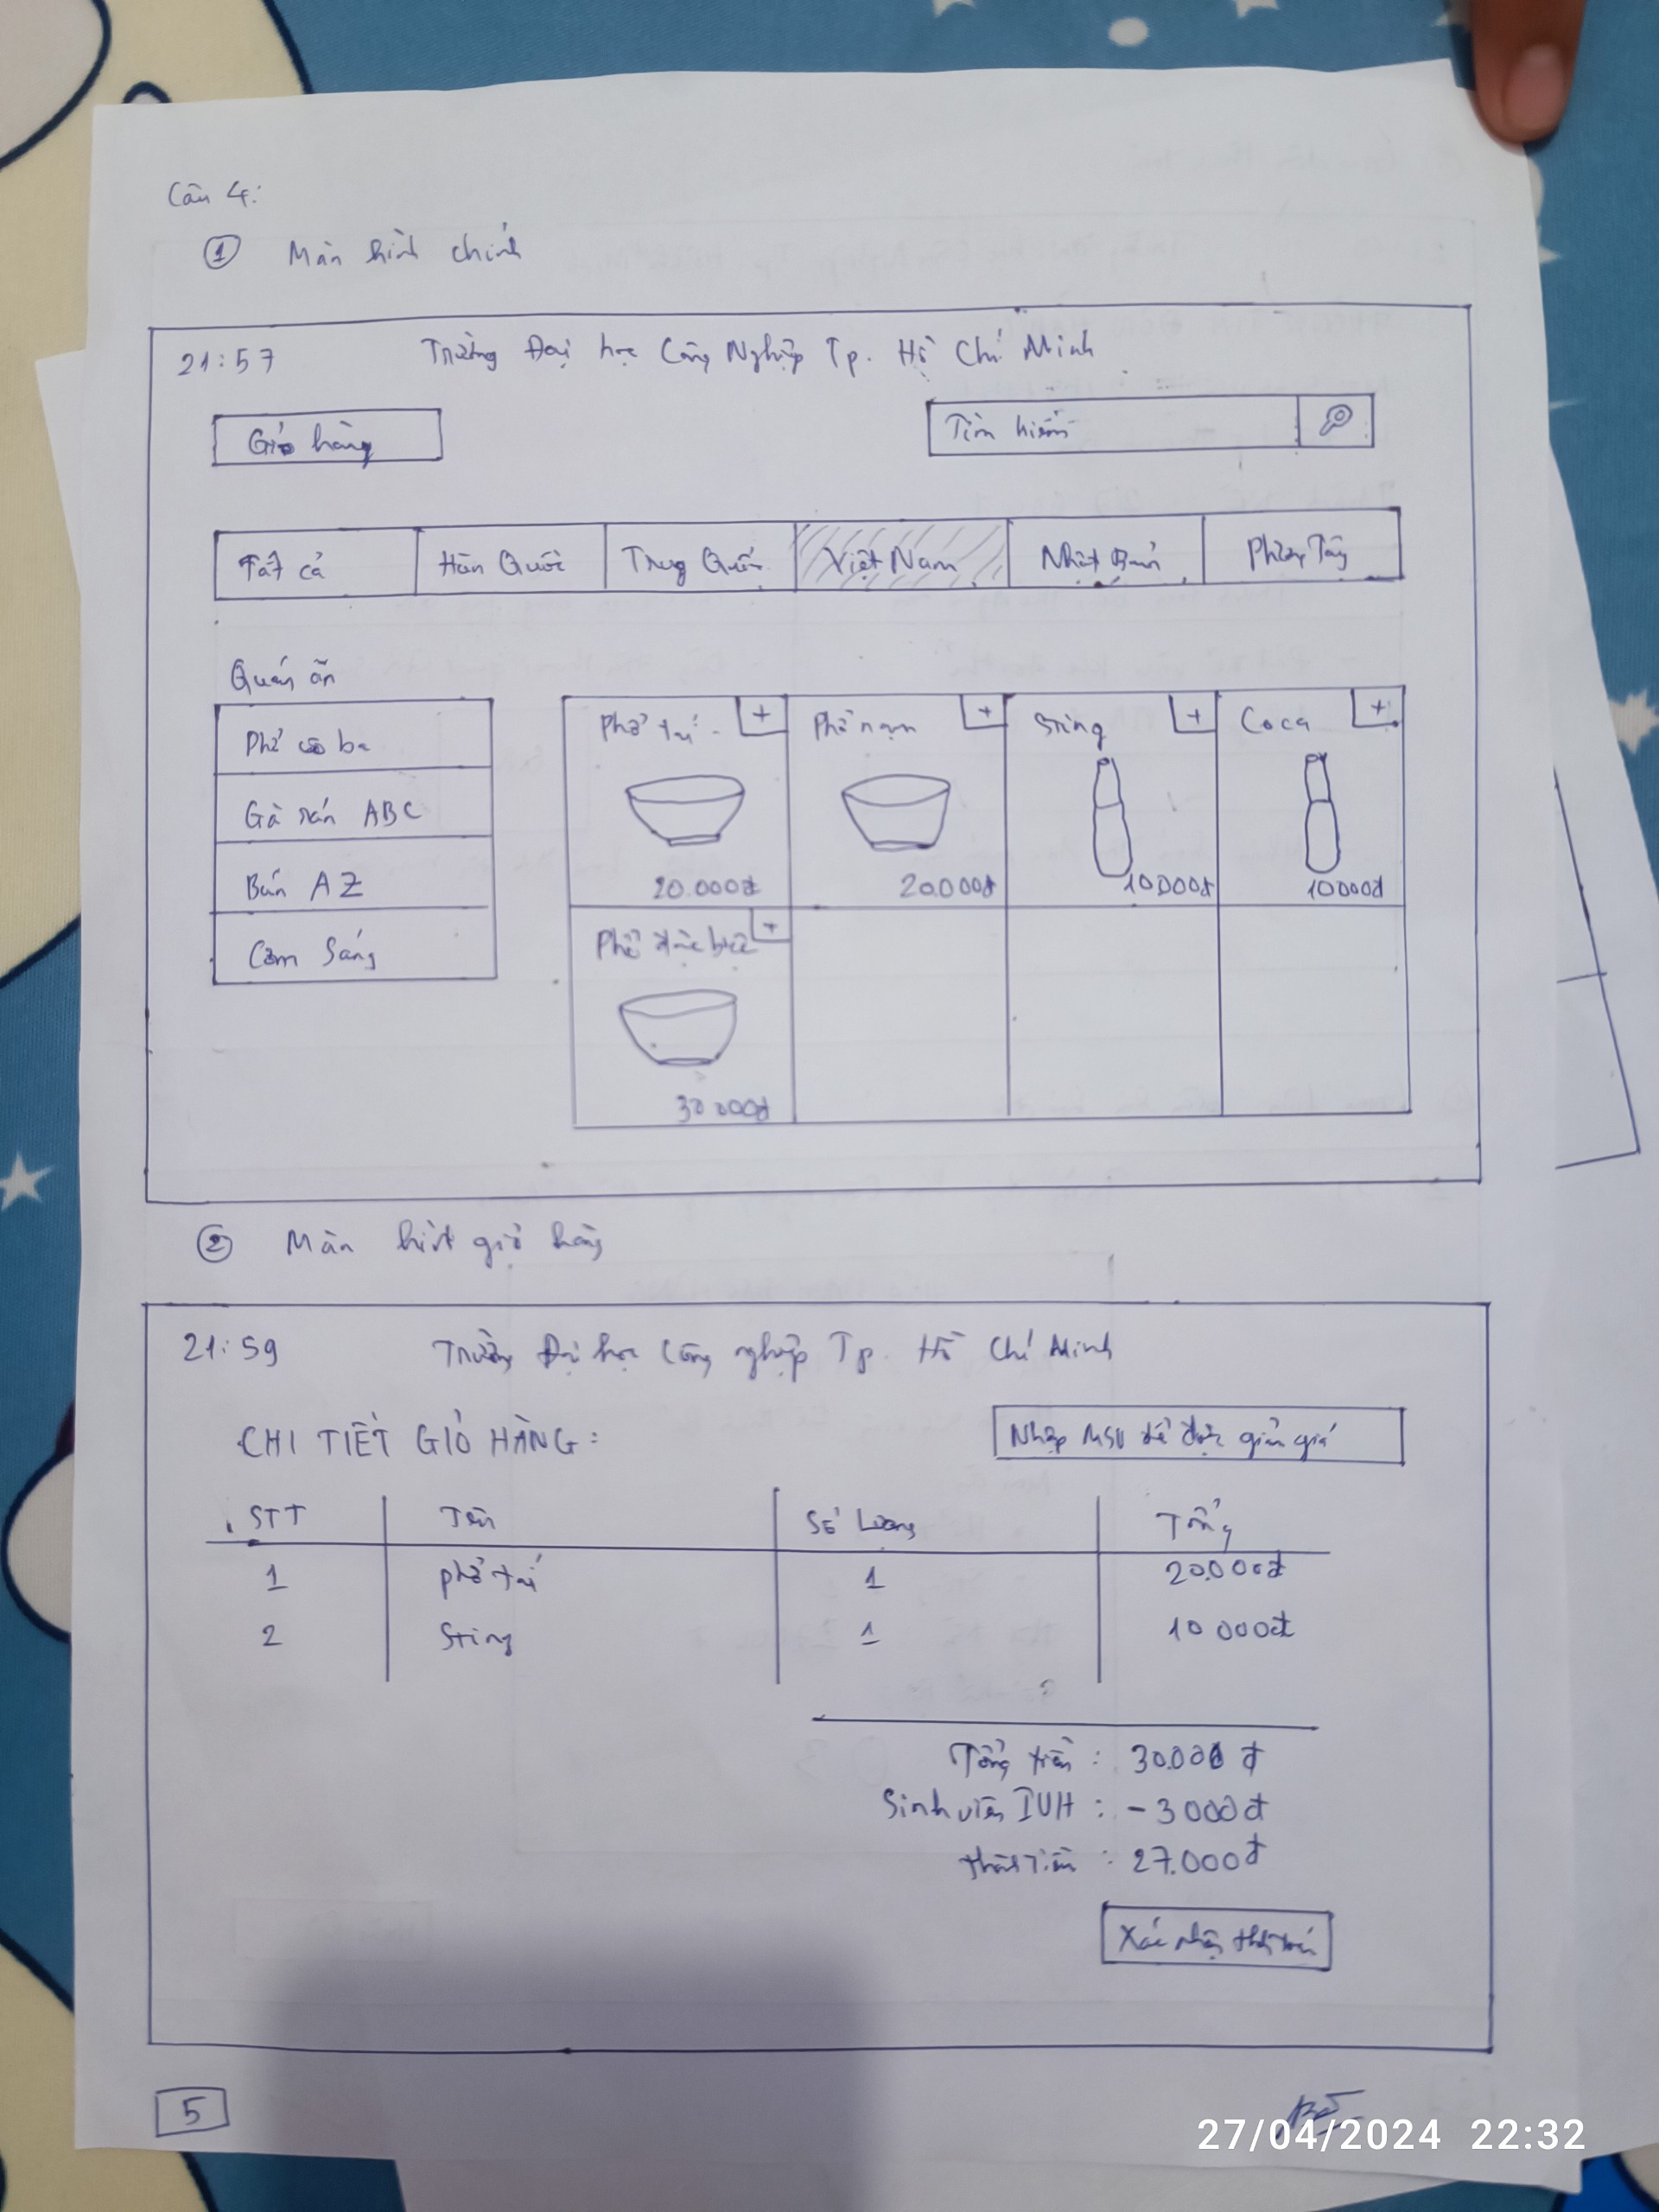 Câu 4:
① Màn hình chính
21:57 Trường Đại học Công Nghiệp Tp. Hồ Chí Minh
Giỏ hàng
Tìm kiếm
Tất cả Hàn Quốc Trung Quốc Việt Nam Nhật Bản Phương Tây
Quán ăn
Phở cô ba
Gà rán ABC
Bún AZ
Cơm Sáng
Phở tái + Phở nạm + Sting + Coca +
20.000đ 20.000đ 10000đ 10000đ
Phở đặc biệt +
30 000đ
② Màn hình giỏ hàng
21:59 Trường Đại học Công nghiệp Tp. Hồ Chí Minh
CHI TIẾT GIỎ HÀNG:
Nhập MSV để được giảm giá
STT Tên Số Lượng Tổng
1 phở tái 1 20.000đ
2 Sting 1 10 000đ
Tổng tiền : 30.000 đ
Sinh viên IUH : - 3 000đ
thành tiền : 27.000đ
Xác nhận thanh toán
5
27/04/2024 22:32